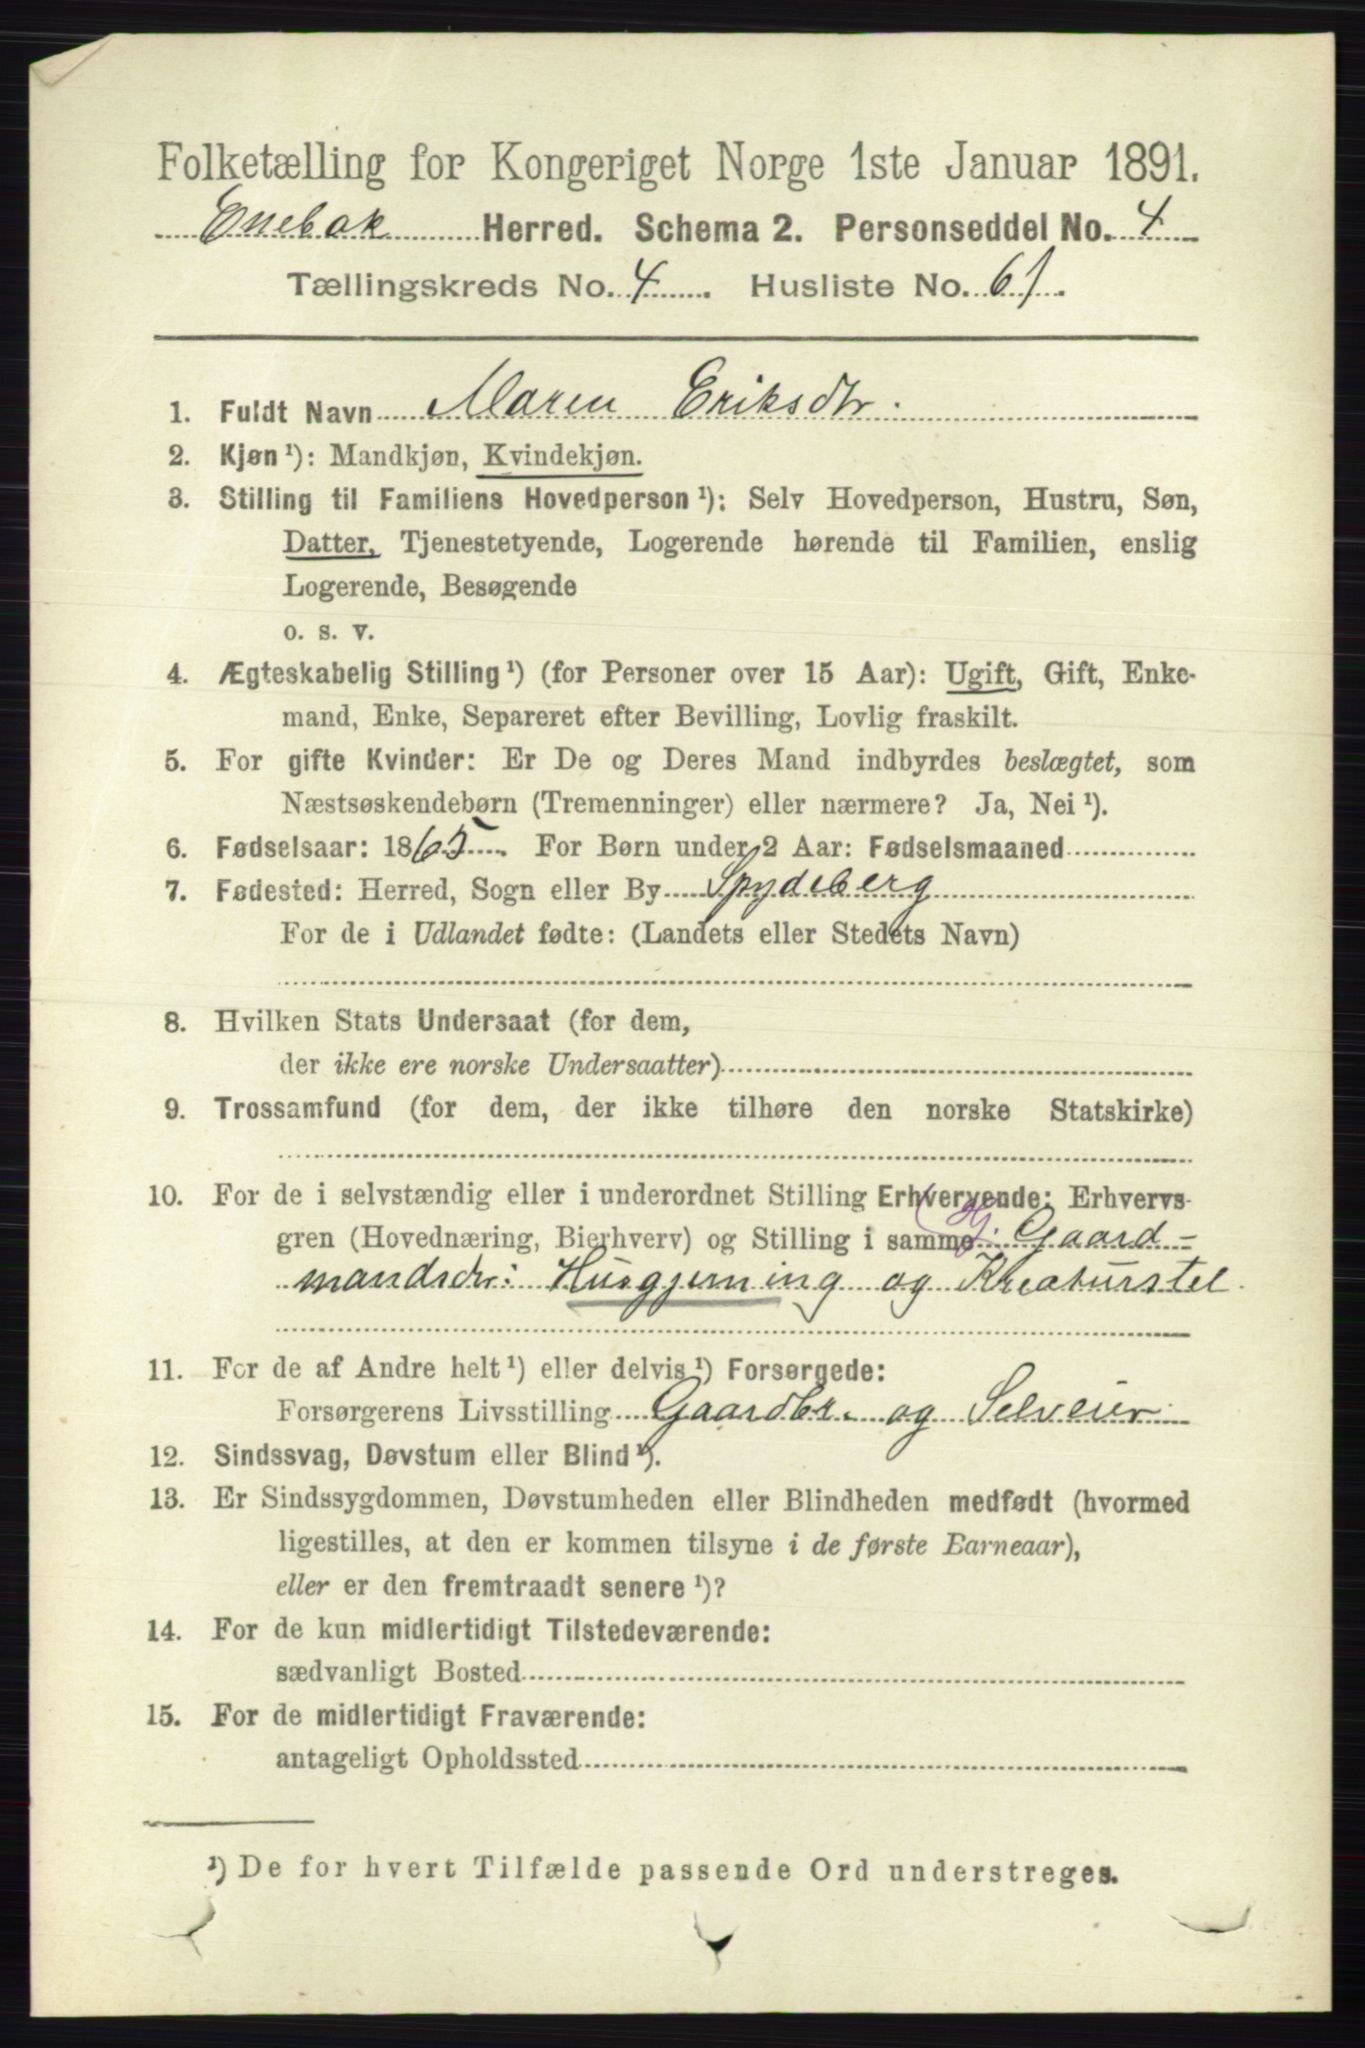 Folketælling for Kongeriget Norge 1ste Januar 1891.
Enebak Herred. Schema 2. Personseddel No. 4
Tællingskreds No. 4 Husliste No. 61
1. Fuldt Navn Maren Eriksdtr.
2. Kjøn ¹): Mandkjøn, Kvindekjøn.
3. Stilling til Familiens Hovedperson ¹): Selv Hovedperson, Hustru, Søn,
Datter, Tjenestetyende, Logerende hørende til Familien, enslig
Logerende, Besøgende
o. s. v.
4. Ægteskabelig Stilling ¹) (for Personer over 15 Aar): Ugift, Gift, Enke-
mand, Enke, Separeret efter Bevilling, Lovlig fraskilt.
5. For gifte Kvinder: Er De og Deres Mand indbyrdes beslægtet, som
Næstsøskendebørn (Tremenninger) eller nærmere? Ja, Nei ¹).
6. Fødselsaar: 1865. For Børn under 2 Aar: Fødselsmaaned
7. Fødested: Herred, Sogn eller By Spydeberg
For de i Udlandet fødte: (Landets eller Stedets Navn)
8. Hvilken Stats Undersaat (for dem,
der ikke ere norske Undersaatter)
9. Trossamfund (for dem, der ikke tilhøre den norske Statskirke)
10. For de i selvstændig eller i underordnet Stilling Erhvervende: Erhvervs-
gren (Hovednæring, Bierhverv) og Stilling i samme: Gaard-
mandsdr: Husgjerning og Kreaturstel.
11. For de af Andre helt ¹) eller delvis ¹) Forsørgede:
Forsørgerens Livsstilling Gaardbr. og Selveier
12. Sindssvag, Døvstum eller Blind ¹).
13. Er Sindssygdommen, Døvstumheden eller Blindheden medfødt (hvormed
ligestilles, at den er kommen tilsyne i de første Barneaar),
eller er den fremtraadt senere ¹)?
14. For de kun midlertidigt Tilstedeværende:
sædvanligt Bosted
15. For de midlertidigt Fraværende:
antageligt Opholdssted
¹) De for hvert Tilfælde passende Ord understreges.